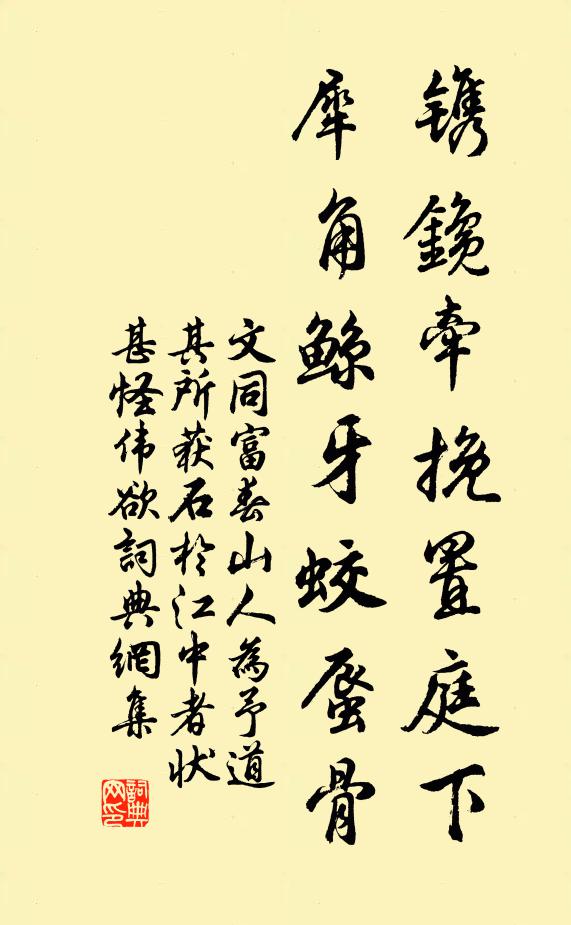 镌鑱牵挽置庭下
犀角鲸牙蛟蜃骨
文同富春山人為予道
其所获石於江中者状
甚怪伟欲詞典網集
詞典
网印